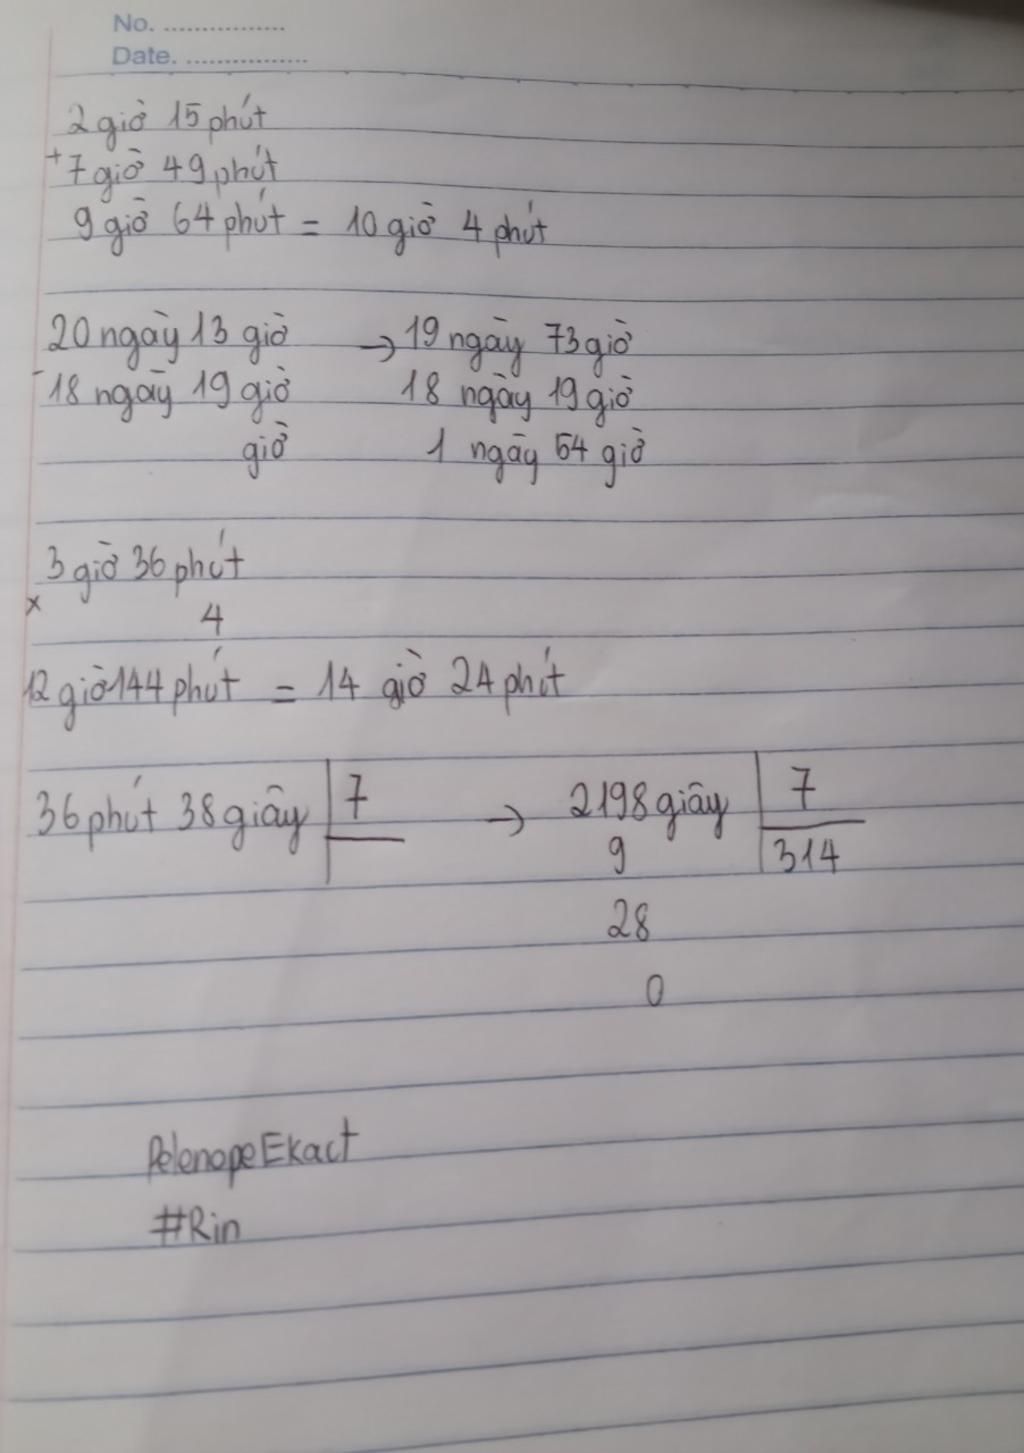 No. ................
Date. ................
2 giờ 15 phút
+
7 giờ 49 phút
9 giờ 64 phút = 10 giờ 4 phút
20 ngày 13 giờ → 19 ngày 73 giờ
-
18 ngày 19 giờ 18 ngày 19 giờ
giờ 1 ngày 54 giờ
3 giờ 36 phút
x
4
12 giờ 144 phút = 14 giờ 24 phút
36 phút 38 giây 7 → 2198 giây 7
9 314
28
0
PelenopeEkact
#Rin